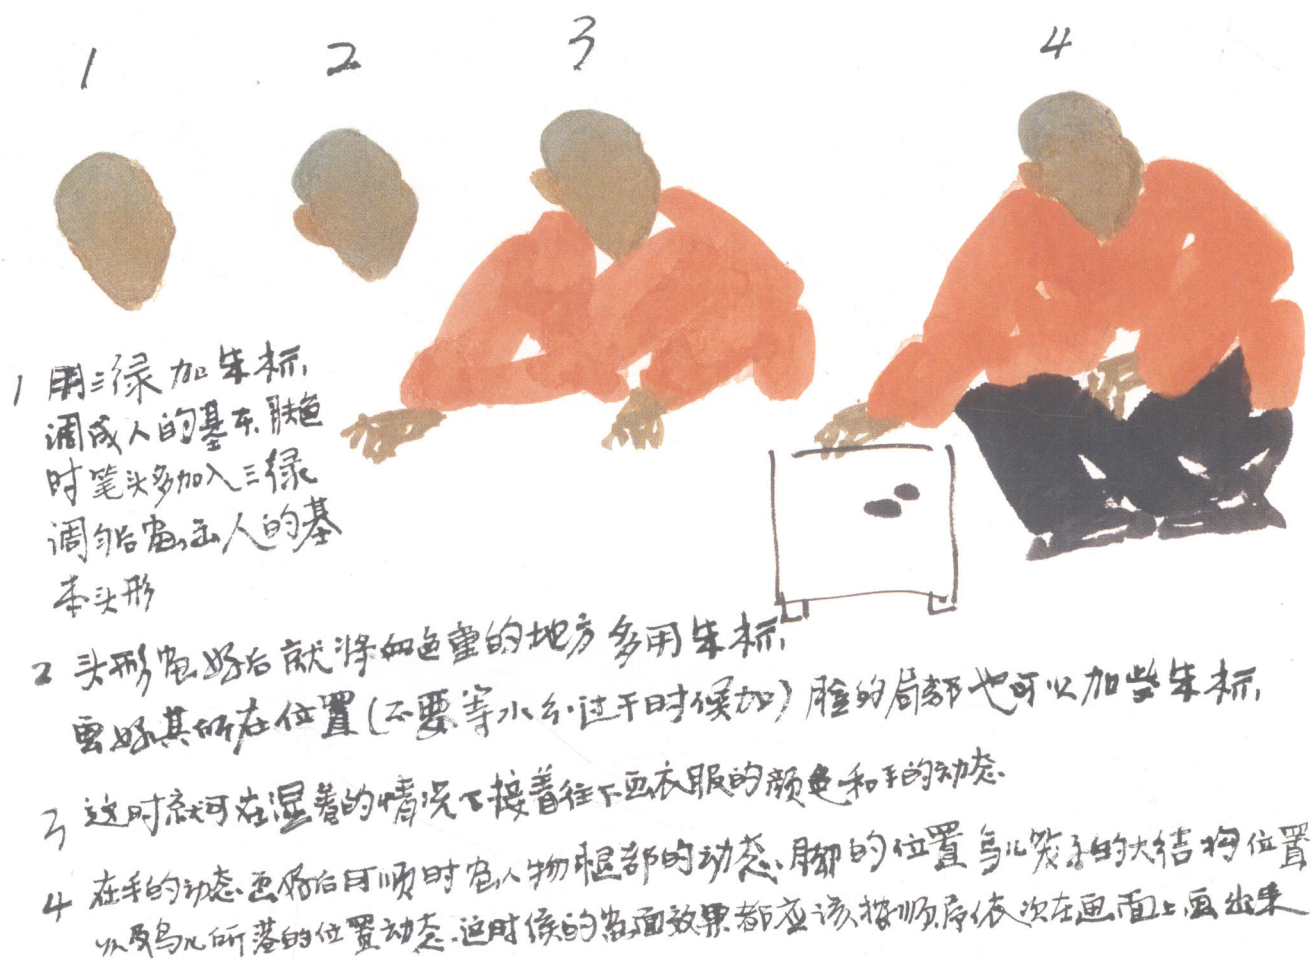 1
2
3
4
1 用三绿加朱标
调成人的基本肤色
时笔头多加入三绿
调匀后画出人的基
本头形
2 头形画好后就将血色重的地方多用朱标
画好其所在位置(不要等水分过干时候加)脸的局部也可以加些朱标
3 这时就可在湿着的情况下接着往下画衣服的颜色和手的动态
4 在手的动态画好后可顺时画人物腿部的动态、脚的位置鸟儿笼子的大结构位置
以及鸟儿所落的位置动态.这时候的画面效果都应该按顺序依次在画面上画出来